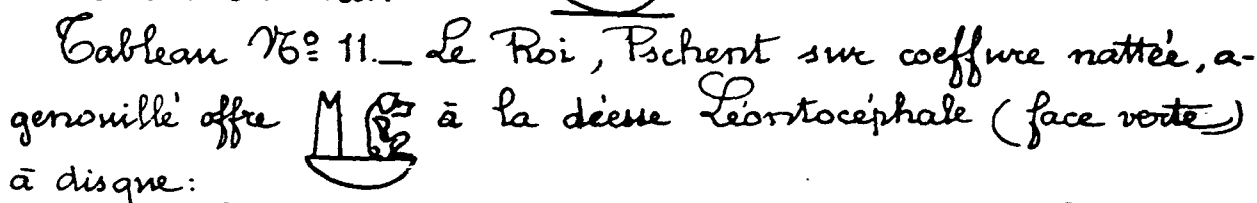 Tableau Nº 11._ Le Roi, Pschent sur coeffure nattée, a-
genouillé offre à la déesse Léontocéphale (face verte)
à disque: